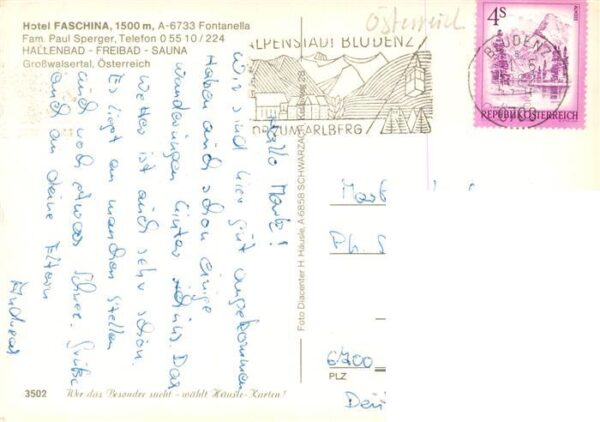 Hotel FASCHINA, 1500 m, A-6733 Fontanella
Fam. Paul Sperger, Telefon 0 55 10 / 224
HALLENBAD - FREIBAD - SAUNA
Großwalsertal, Österreich
Österreich
ALPENSTADT BLUDENZ
VORARLBERG
BLUDENZ
6700
4S
REPUBLIK ÖSTERREICH
Hallo Mark!
Wir sind hier gut angekommen
Haben auch schon einige
Wanderungen hinter uns. Das
Wetter ist auch sehr schön.
Es liegt an manchen Stellen
auch noch etwas Schnee. Grüße
auch an deine Eltern
Andreas
Foto Diacenter H. Häusle, A-6858 SCHWARZACH
Mark
6700
PLZ
3502
Wer das Besondere sucht - wählt Häusle-Karten!